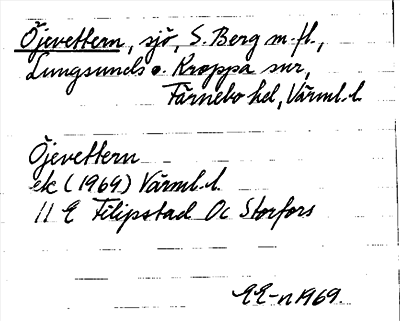 Öjevettern, sjö, S. Berg m. fl.,
Lungsunds o. Kroppa snr,
Färnebo hd, Värml. l.
Öjevettern
ek (1969) Värml. l.
11 E Filipstad Öc Storfors
EE-n 1969.